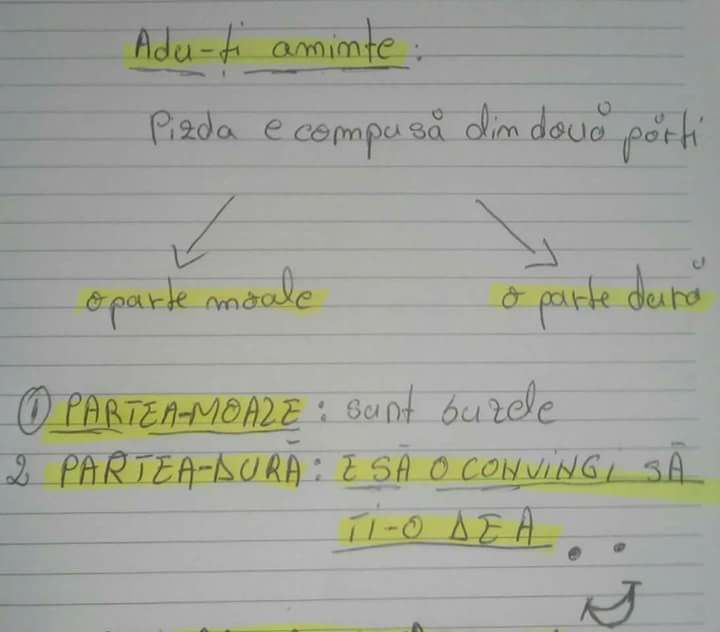 Adu-ți aminte:
Pizda e compusă din două părți
o parte moale
o parte dură
1 PARTEA-MOALE: sunt buzele
2 PARTEA-DURĂ: E SĂ O CONVINGI SĂ
ȚI-O DEA..